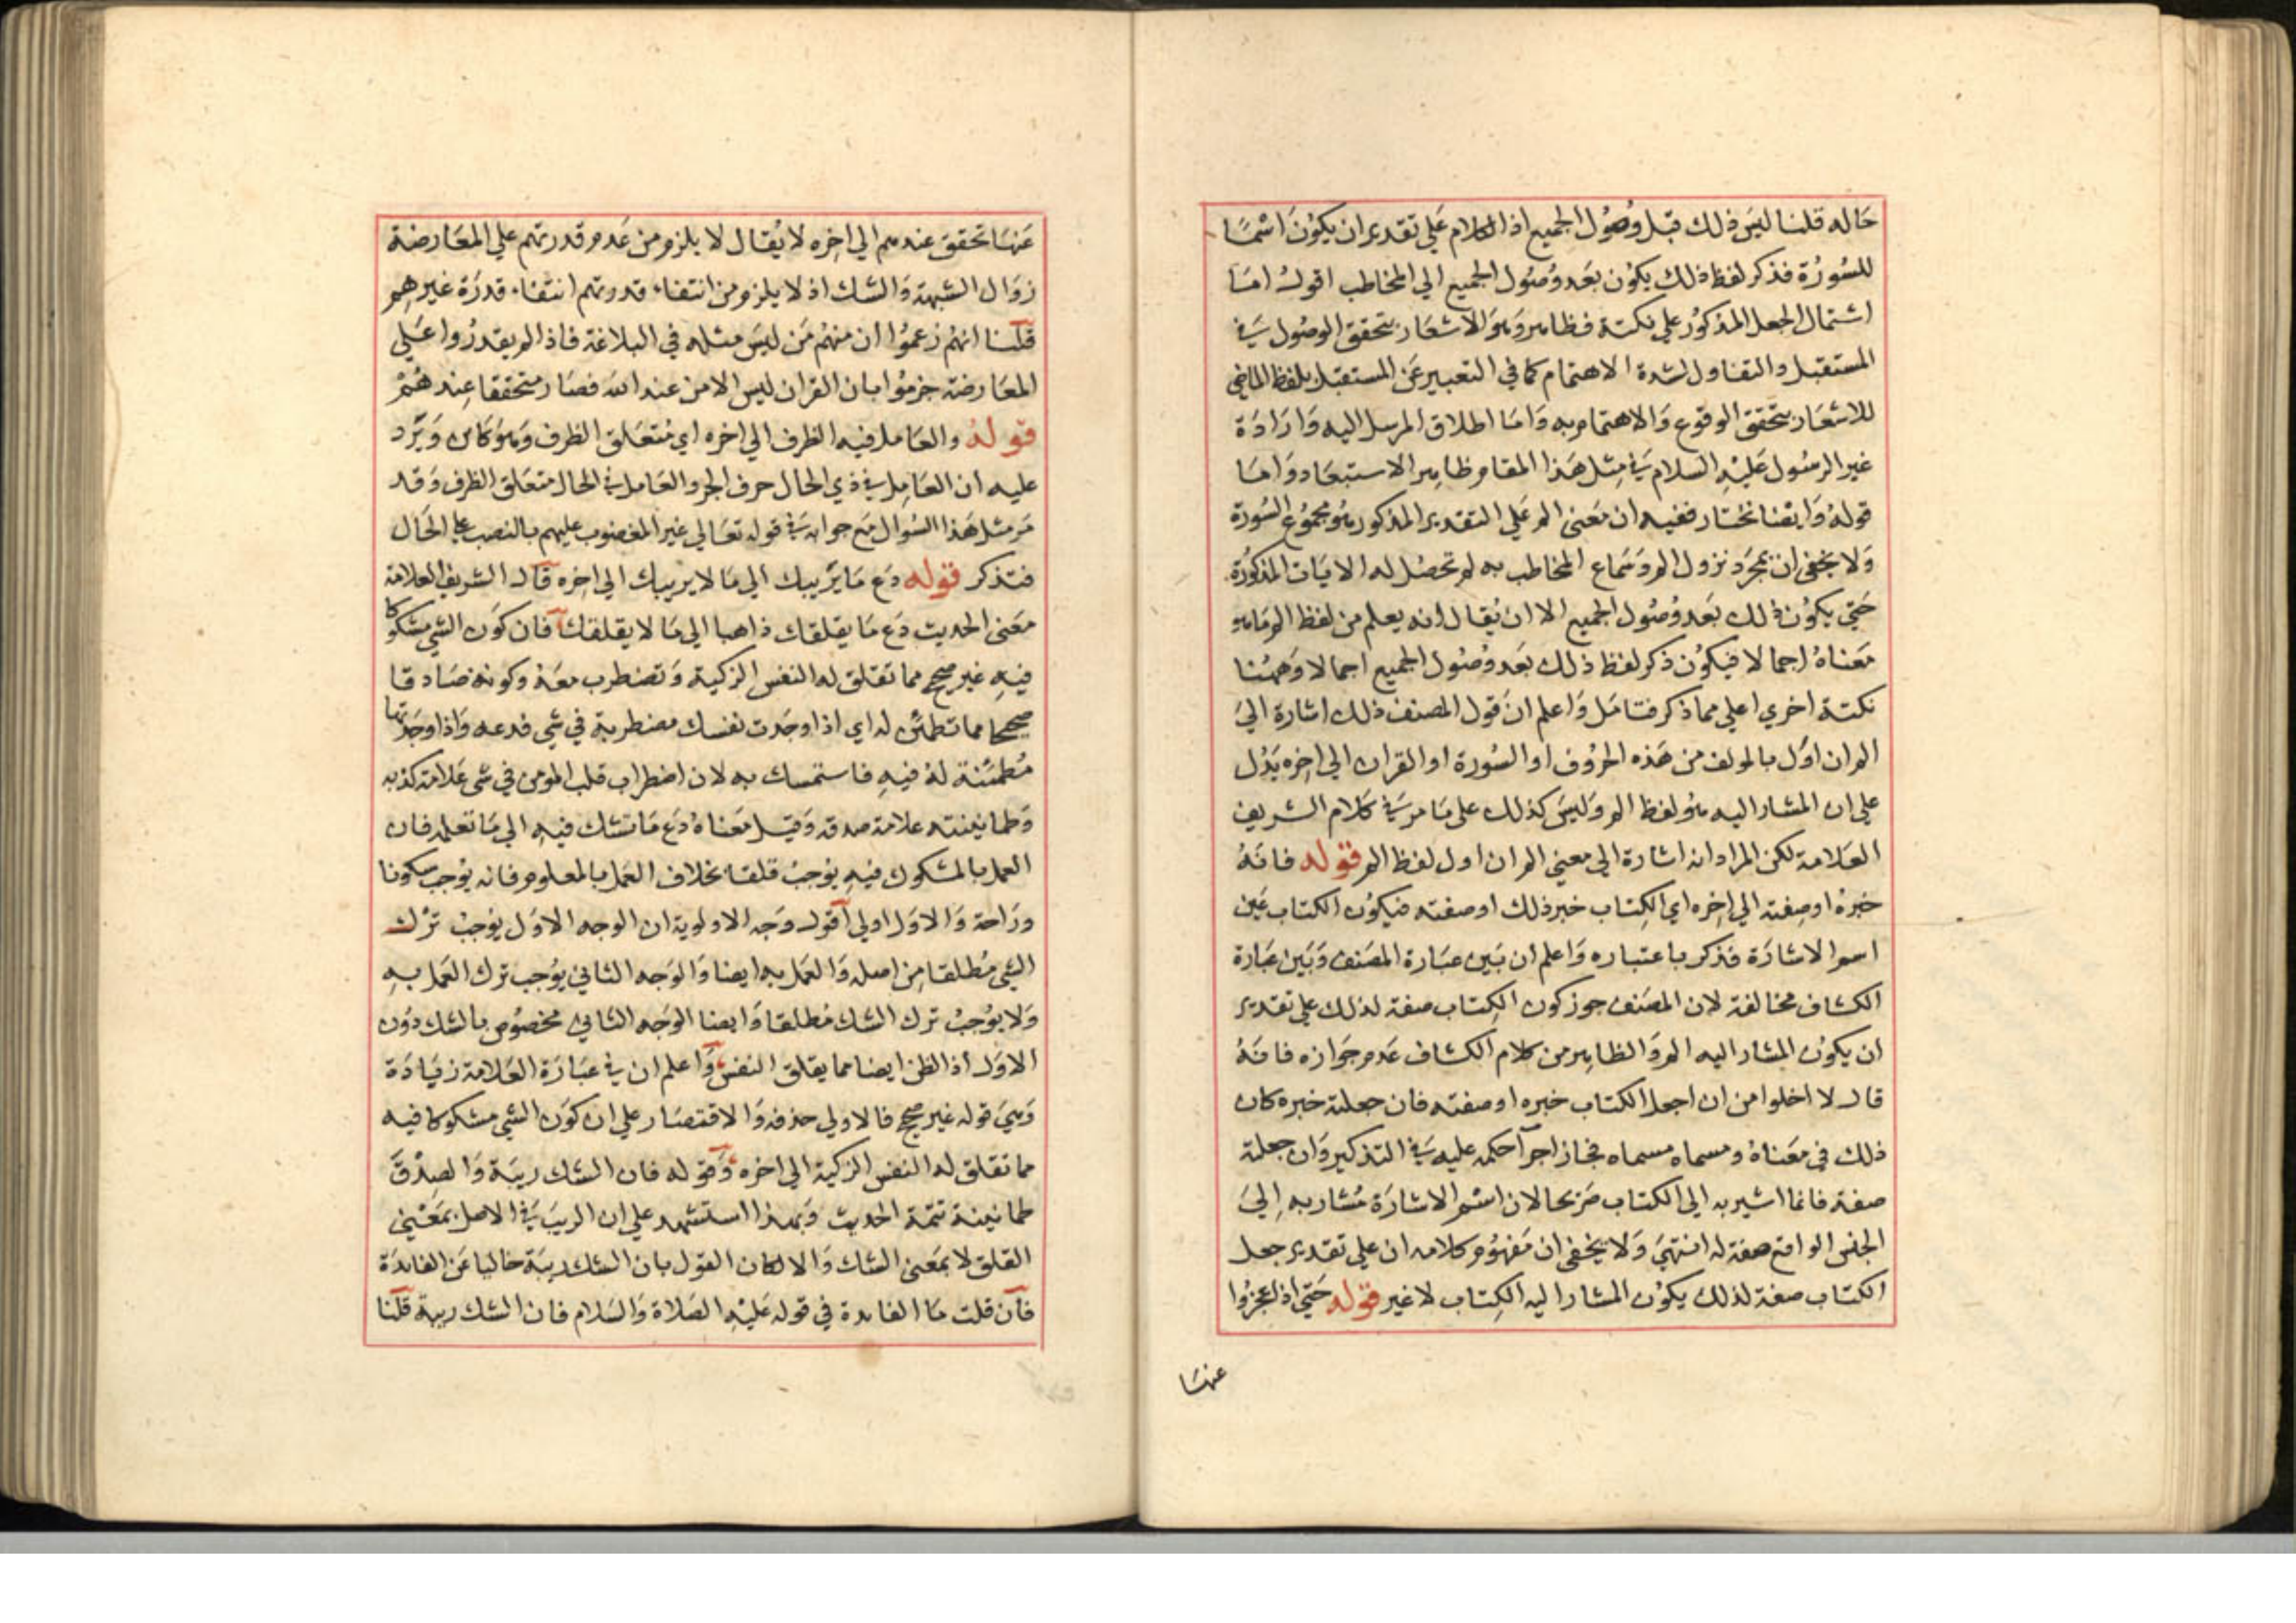 حاله قلنا ليس ذلك قبل وصول الجميع اذ الكلام علي تقدير ان يكون اسما
للسورة فذكر لفظ ذلك يكون بعد وصول الجميع الي المخاطب اقول اما
اشتمال الجعل المذكور علي نكتة فظاهر وهو الاشعار بتحقق الوصول في
المستقبل والتفاول لشدة الاهتمام كما في التعبير عن المستقبل بلفظ الماضي
للاشعار بتحقق الوقوع والاهتمام به واما اطلاق المرسل اليه وارادة
غير الرسول عليه السلام في مثل هذا المقام ظاهر الاستبعاد واما
قوله وايضا نختار ففيه ان معني الم علي التقدير المذكور هو مجموع السورة
ولا يخفي ان بمجرد نزول الم وسماع المخاطب به لم تحصل له الايات المذكورة
حتي يكون ذلك بعد وصول الجميع الا ان يقال انه يعلم من لفظ الم ما هو
معناه اجمالا فيكون ذكر لفظ ذلك بعد وصول الجميع اجمالا وههنا
نكتة اخري اعلي مما ذكر فتامل واعلم ان قول المصنف ذلك اشارة الي
الم ان اول بالمولف من هذه الحروف او السورة او القران الي اخره يدل
علي ان المشار اليه هو لفظ الم وليس كذلك علي ما مر في كلام الشريف
العلامة لكن المراد انه اشارة الي معني الم ان اول لفظ الم قوله فانه
خبره او صفته الي اخره اي الكتاب خبر ذلك او صفته فيكون الكتاب عين
اسم الاشارة فذكر باعتباره واعلم ان بين عبارة المصنف وبين عبارة
الكشاف مخالفة لان المصنف جوز كون الكتاب صفة لذلك علي تقدير
ان يكون المشار اليه الم والظاهر من كلام الكشاف عدم جوازه فانه
قال لا اخلوا من ان اجعل الكتاب خبره او صفته فان جعلته خبره كان
ذلك في معناه ومسماه مسماه فجاز اجرا حكمه عليه في التذكير وان جعلته
صفة فانما اشير به الي الكتاب صريحا لان اسم الاشارة مشار به الي
الجنس الواقع صفة له انتهي ولا يخفي ان مفهوم كلامه ان علي تقدير جعل
الكتاب صفة لذلك يكون المشار اليه الكتاب لا غير قوله حتي اذا عجزوا
عنها
عنها تحقق عندهم الي اخره لا يقال لا يلزم من عدم قدرتهم علي المعارضة
زوال الشبهة والشك اذ لا يلزم من انتفاء قدرتهم انتفاء قدرة غيرهم
قلنا انهم زعموا ان منهم من ليس مثله في البلاغة فاذا لم يقدروا علي
المعارضة جزموا بان القران ليس الا من عند الله فصار متحققا عندهم
قوله والعامل فيه الظرف الي اخره اي متعلق الظرف وهو كاين ويرد
عليه ان العامل في ذي الحال حرف الجر والعامل في الحال متعلق الظرف وقد
مر مثل هذا السوال مع جوابه في قوله تعالي غير المغضوب عليهم بالنصب علي الحال
فتذكر قوله دع ما يريبك الي ما لا يريبك الي اخره قال الشريف العلامة
معني الحديث دع ما يقلقك ذاهبا الي ما لا يقلقك فان كون الشي مشكوكا
فيه غير صحيح مما تقلق له النفس الزكية وتضطرب معه وكونه صادقا
صحيحا مما تطمئن له اي اذا وجدت نفسك مضطربة في شي فدعه واذا وجدتها
مطمئنة له فيه فاستمسك به لان اضطراب قلب المومن في شي علامة كذبه
وطمانينته علامة صدقه وقيل معناه دع ما تشك فيه الي ما تعلمه فان
العمل بالمشكوك فيه يوجب قلقا بخلاف العمل بالمعلوم فانه يوجب سكونا
وراحة والاول اولي اقول وجه الاولوية ان الوجه الاول يوجب ترك
الشي مطلقا من اصله والعمل به ايضا والوجه الثاني يوجب ترك العمل به
ولا يوجب ترك الشك مطلقا وايضا الوجه الثاني مخصوص بالشك دون
الاول اذ الظن ايضا مما يقلق النفس واعلم ان في عبارة العلامة زيادة
وهي قوله غير صحيح فالاولي حذفه والاقتصار علي ان كون الشي مشكوكا فيه
مما تقلق له النفس الزكية الي اخره وقوله فان الشك ريبة والصدق
طمانينة تتمة الحديث وبهذا استشهد علي ان الريب في الاصل بمعني
القلق لا بمعني الشك والا لكان القول بان الشك ريبة خاليا عن الفايدة
فان قلت ما الفايدة في قوله عليه الصلاة والسلام فان الشك ريبة قلنا